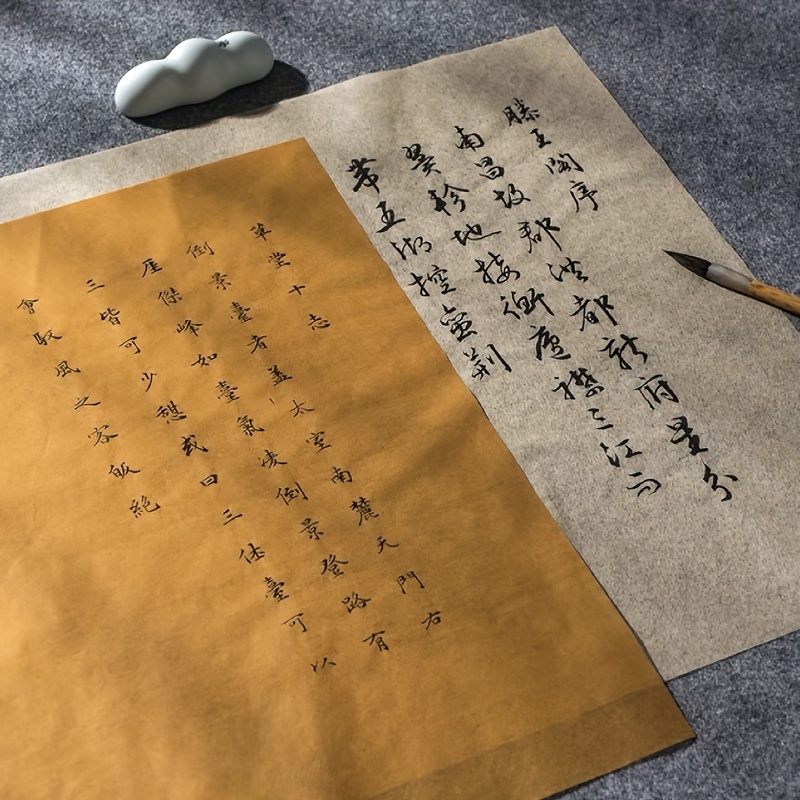 滕王閣序
南昌故郡洪都新府星分
翼軫地接衡廬襟三江而
帶五湖控蛮荆
草堂十志
倒景臺者蓋太室南麓天門右
厓傑峰如臺氣凌倒景登路有
三皆可少憩或曰三休臺可以
會馭風之客皈絕